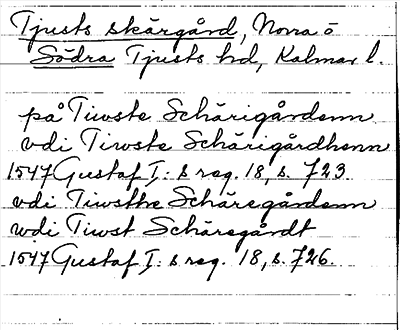 Tjusts skärgård, Norra o
Södra Tjusts hd, Kalmar l.
på Tiwste Schärigårdenn
vdi Tiwste Schärigårdhenn
1547 Gustaf I:s reg. 18, s. 723
vdi Tiwsthe Schäregårdenn
wdi Tiwst Schäregårdt
1547 Gustaf I:s reg. 18, s. 726.